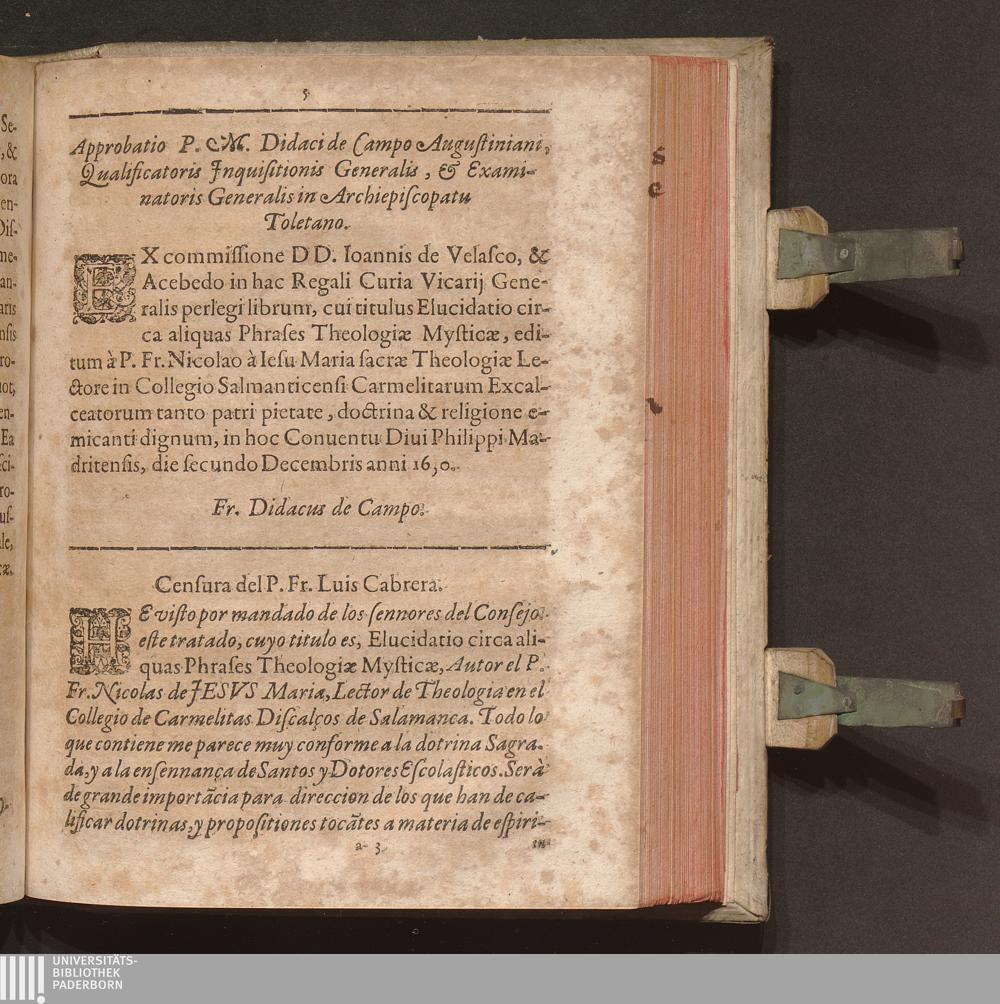 5
Approbatio P. M. Didaci de Campo Auguſtiniani,
Qualificatoris Inquiſitionis Generalis, & Exami-
natoris Generalis in Archiepiſcopatu
Toletano.
EX commiſſione D D. Ioannis de Velaſco, &
Acebedo in hac Regali Curia Vicarij Gene-
ralis perlegi librum, cui titulus Elucidatio cir-
ca aliquas Phraſes Theologiæ Myſticæ, edi-
tum à P. Fr. Nicolao à Ieſu Maria ſacræ Theologiæ Le-
ctore in Collegio Salmanticenſi Carmelitarum Excal-
ceatorum tanto patri pietate, doctrina & religione e-
micanti dignum, in hoc Conuentu Diui Philippi Ma-
dritenſis, die ſecundo Decembris anni 1630.
Fr. Didacus de Campo.
Cenſura del P. Fr. Luis Cabrera.
HE viſto por mandado de los ſennores del Conſejo
eſte tratado, cuyo titulo es, Elucidatio circa ali-
quas Phraſes Theologiæ Myſticæ, Autor el P.
Fr. Nicolas de JESVS Maria, Lector de Theologia en el
Collegio de Carmelitas Diſcalços de Salamanca. Todo lo
que contiene me parece muy conforme a la dotrina Sagra-
da, y a la enſennança de Santos y Dotores Eſcolaſticos. Serà
de grande importãcia para direccion de los que han de ca-
lificar dotrinas, y propoſitiones tocãtes a materia de eſpiri-
a 3
Se-
, &
ora
en-
Diſ-
me-
an-
aris
nſis
ro-
uot,
en-
Ea
ſci-
ro-
uſ-
ale,
cæ.
UNIVERSITÄTS-
BIBLIOTHEK
PADERBORN